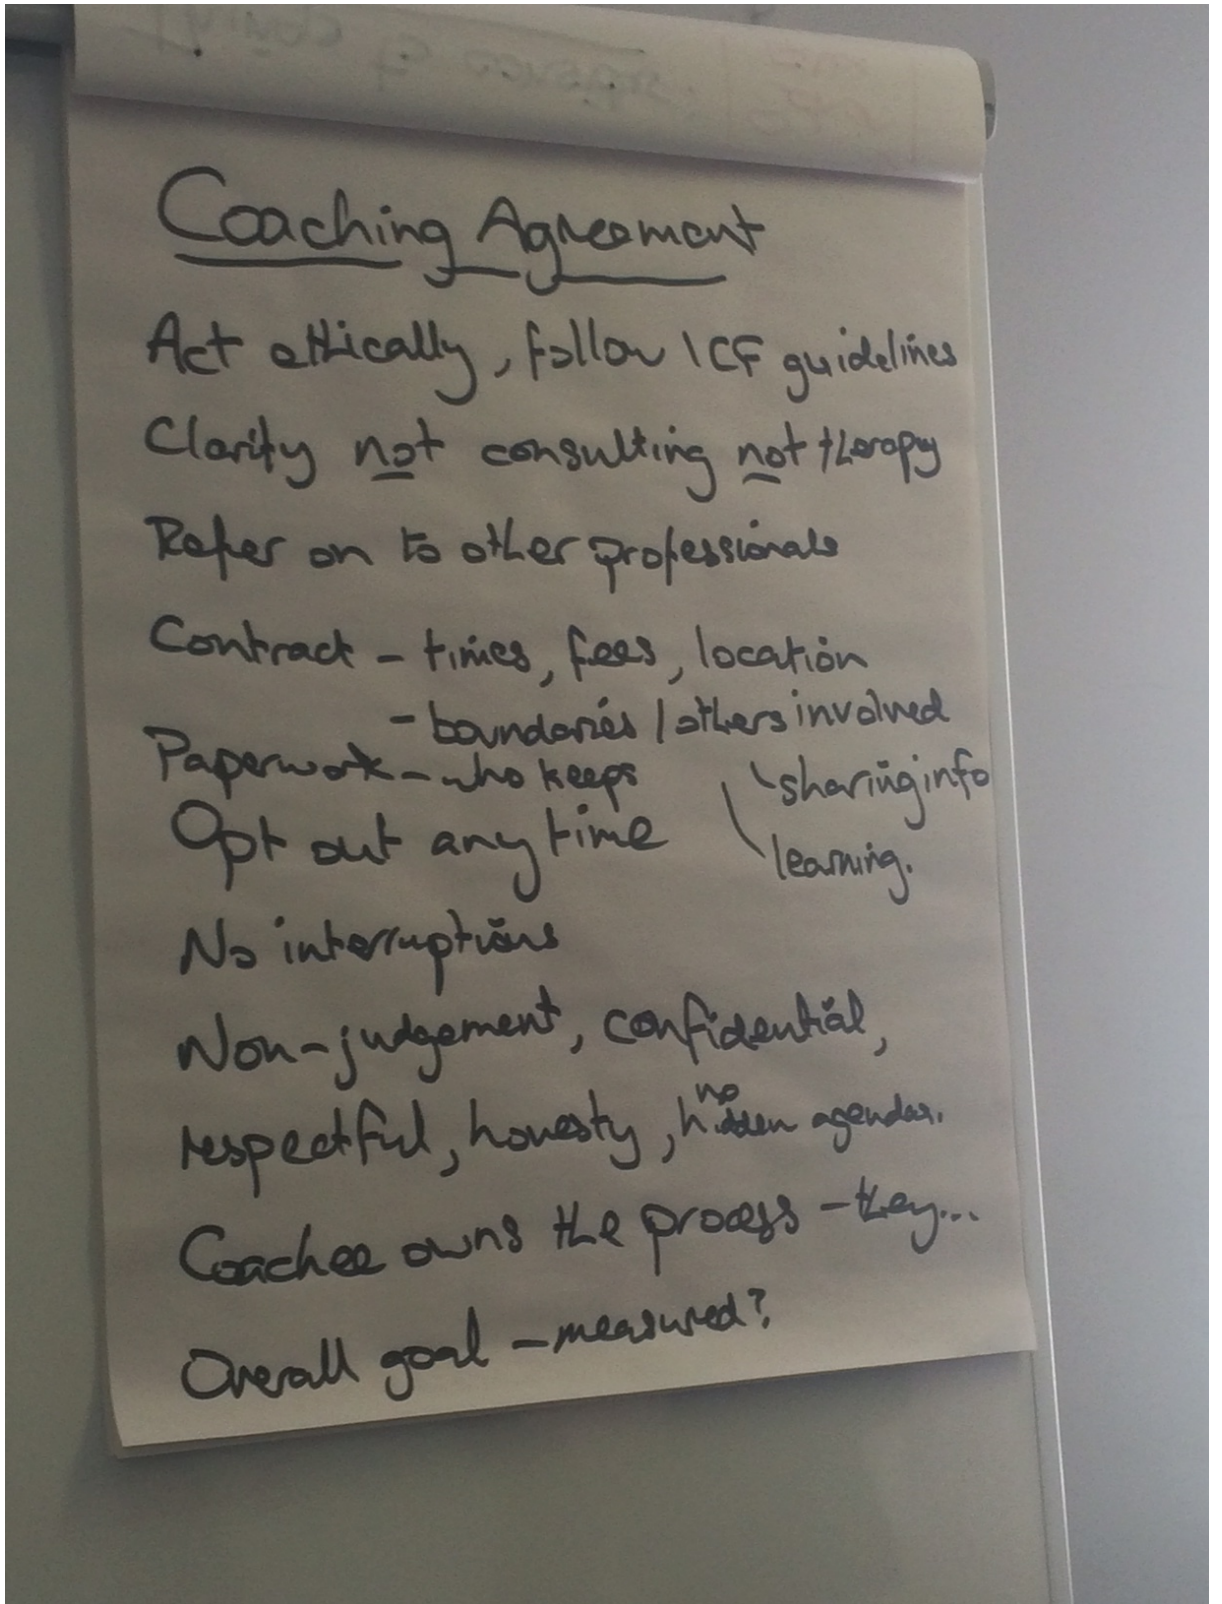 Coaching Agreement
Act ethically, follow ICF guidelines
Clarity not consulting not therapy
Refer on to other professionals
Contract - times, fees, location
- boundaries / others involved
Paperwork - who keeps
sharing info
Opt out any time
learning.
No interruptions
Non-judgement, confidential,
no
respectful, honesty, hidden agendas.
Coachee owns the process - they...
Overall goal - measured?